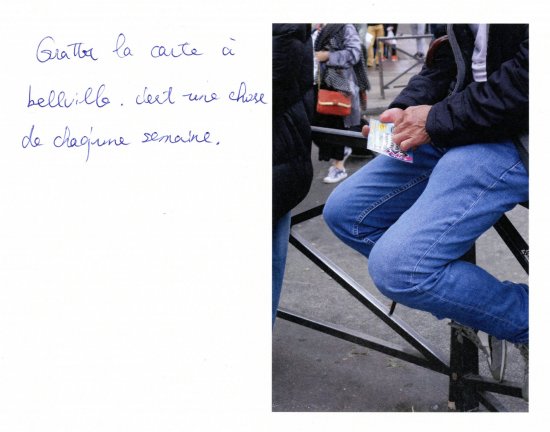 Gratter la carte à
bellville. c'est une chose
de chaqu'une semaine.